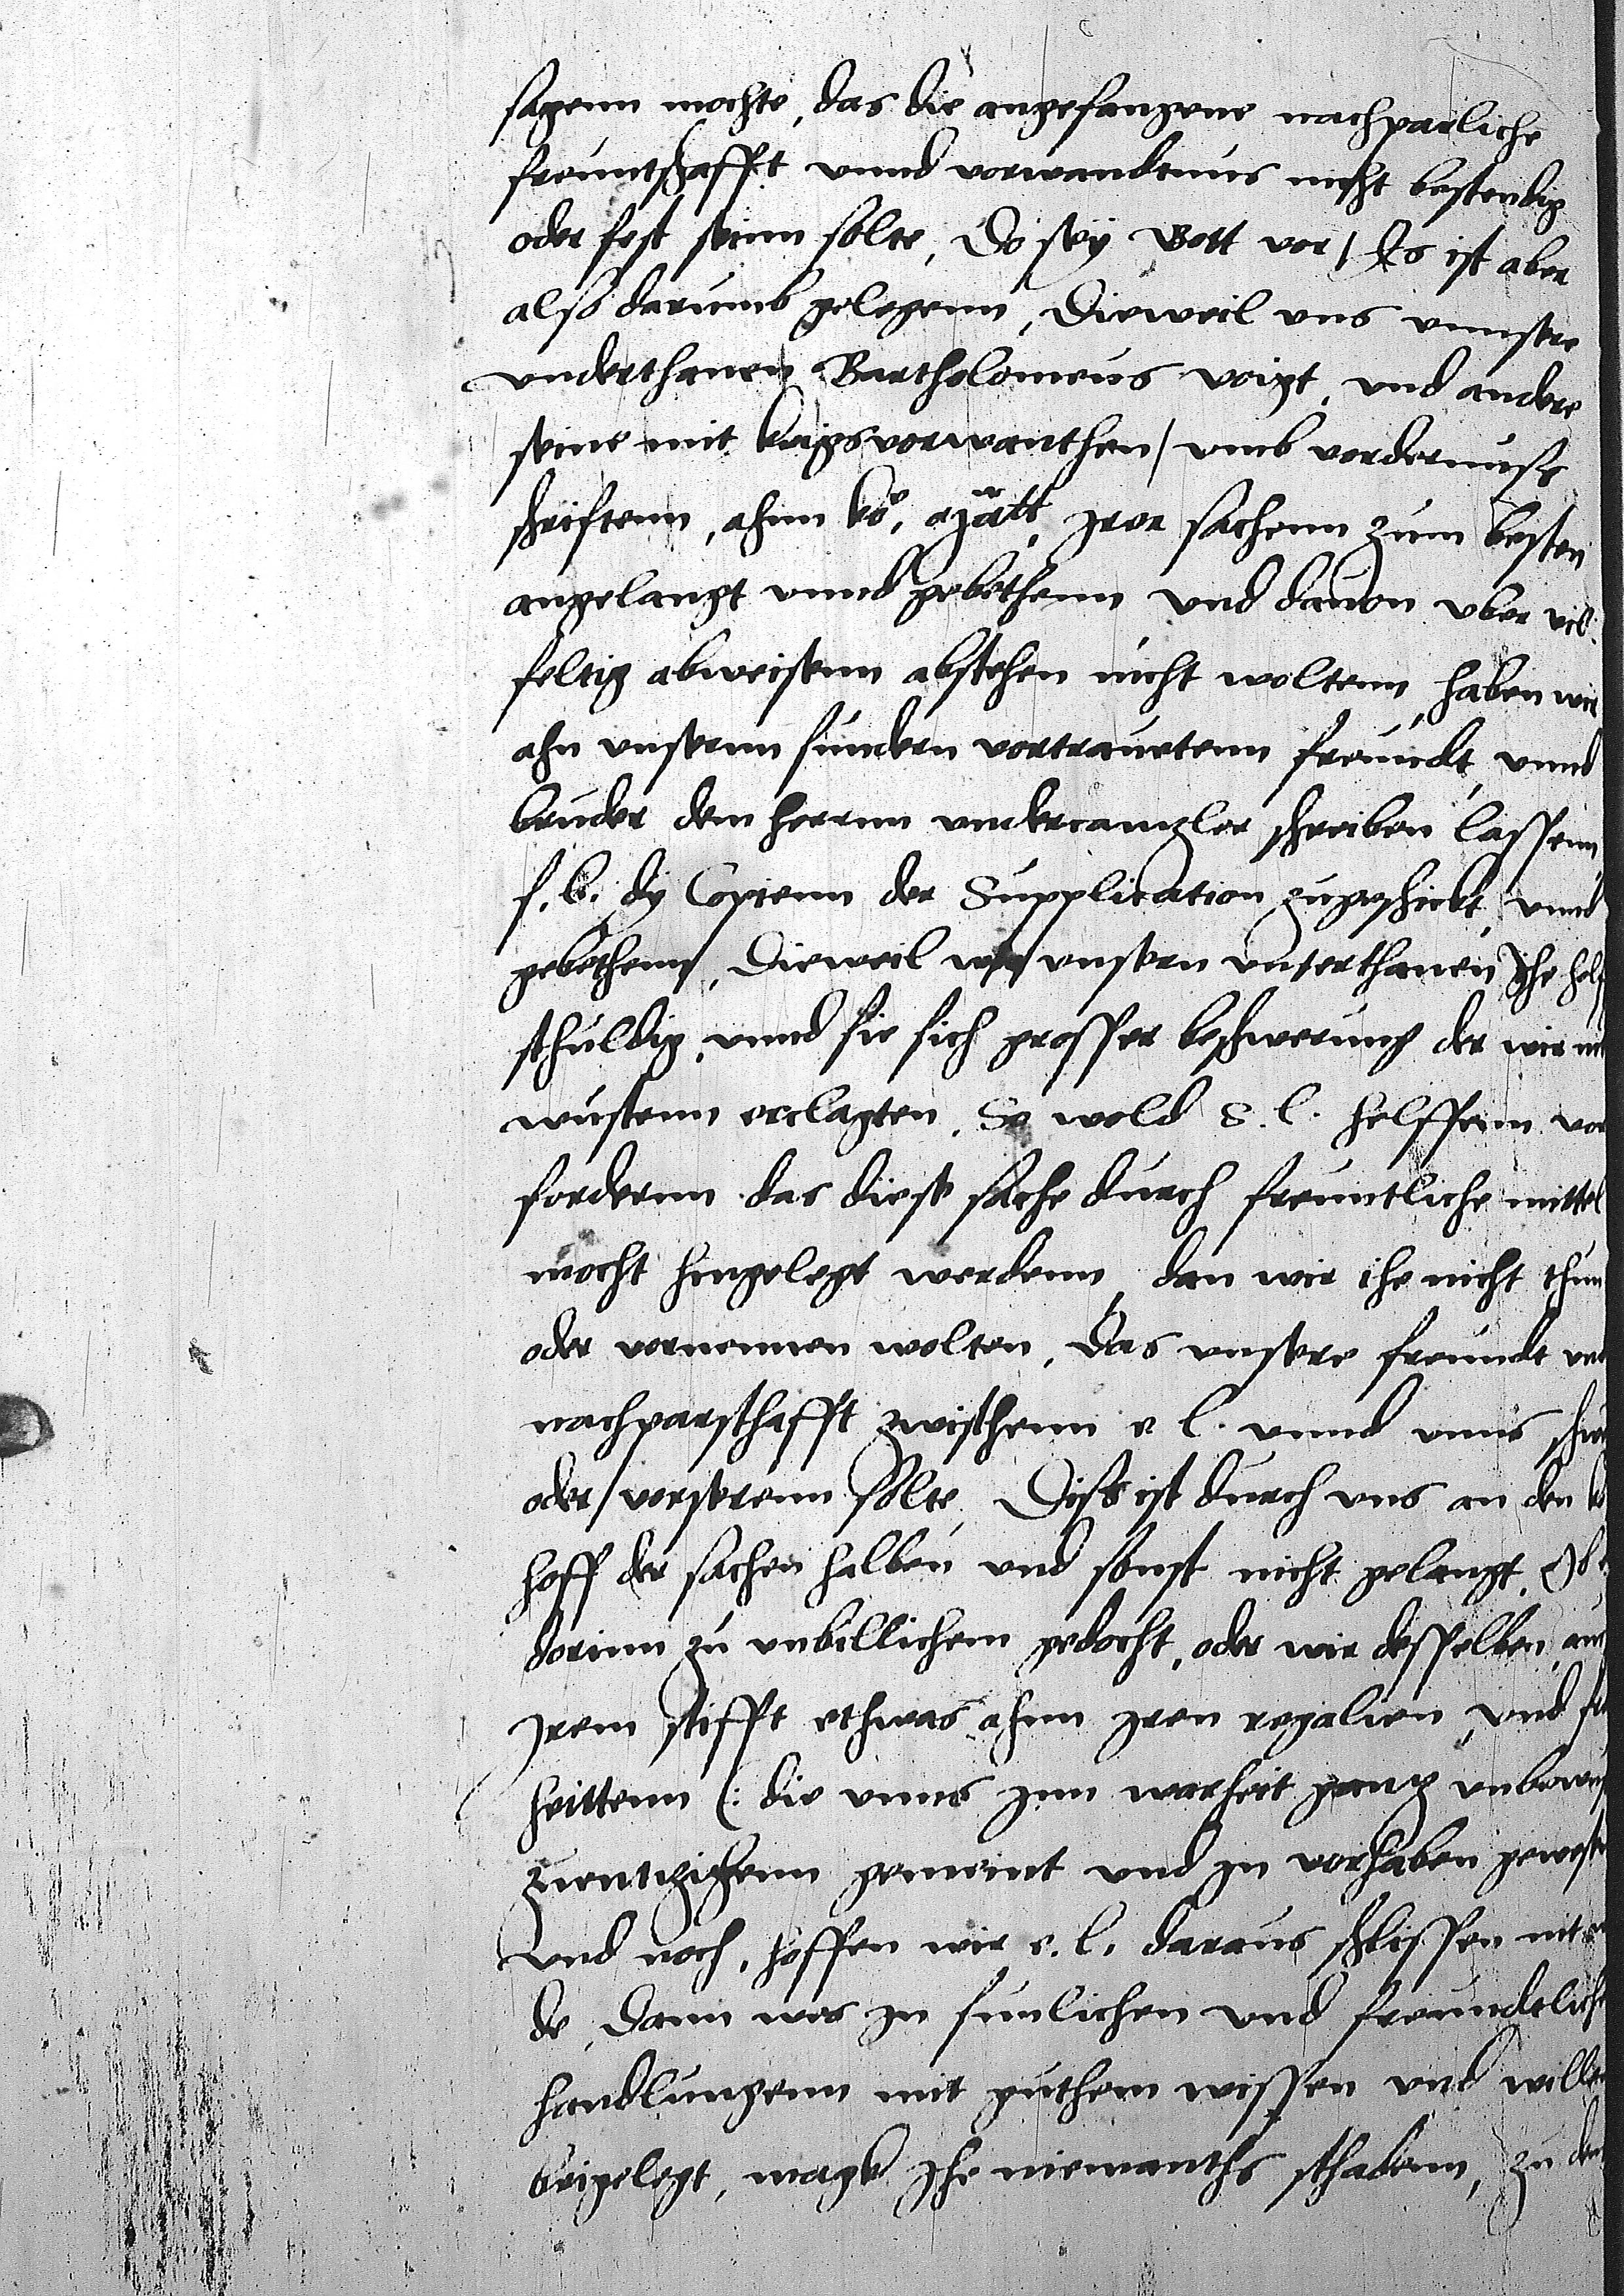 sagenn mochte, das die angefangene nachparliche
freuntschafft vnnd vorwandtnus nicht bestendig
oder fest seinn solte, Do sey Gott vor / Es ist aber
also darumb gelegenn, Dieweil vns vnnsere
vnderthanen Bartholomeus voigt, vnd andere
seine mit krigsvorwanthen / vmb vordernuss
schrifftenn, ahnn ko, matt, irer sachenn zum besten
angelangt vnnd gebethenn vnd dauon vber vil-
feltig abweisenn abstehen nicht woltenn, haben wir
ahn vnsernn sundern vortrauetenn freundt, vnnd
bruder dem herrnn vndercanzler schreiben lassenn
s. l. dy Copienn der Supplication zugeschickt, vnnd
gebethenn, Dieweil wir vnsern vnterthanen Jhe
schuldig, vnnd sie sich grosser beschwerung der wir
wustenn erclagten, So wold s. l. helffenn vor
fordernn das diese sache durch freuntliche mittel
mocht hingelegt werdenn, dan wir ihe nicht thun
oder vornemen wolten, das vnsere freundt
nachparschafft zwischenn e. l. vnnd vnns
oder / vorserenn solte, Diss ist durch vns an den
hoff der sachen halben vnd sonst nicht gelangt,
dorinn zu vnbillichem gedocht, oder wir desselben
Jrem stifft ethwas ahnn iren regalien, vnd
heittenn (: die vnns inn warheit gantz
zuentzihenn gemeint vnd in vorhaben gewesen
vnd noch, hoffen wir e. l. daraus schlissen
de, dann was in sunlichen vnd freundtlich
handlungenn mit guthem wissen vnd willen
beigelegt, magk Jhe niemanths schadenn, zu